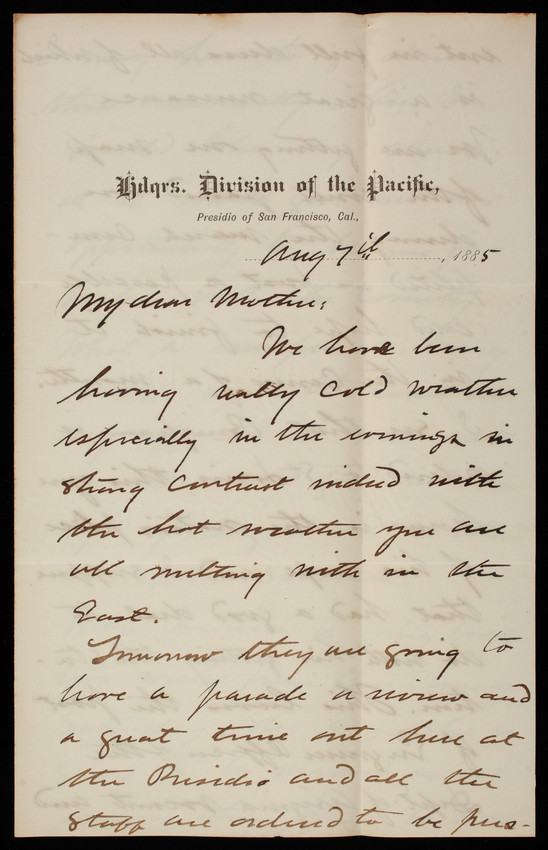 Hdqrs. Division of the Pacific,
Presidio of San Francisco, Cal.,
Aug 7th, 1885
My dear Mother;
We have been
having really cold weather
especially in the evenings in
strong contrast indeed with
the hot weather you are
all melting with in the
East.
Tomorrow they are going to
have a parade a review and
a great time out here at
the Presidio and all the
staff are ordered to be pres-